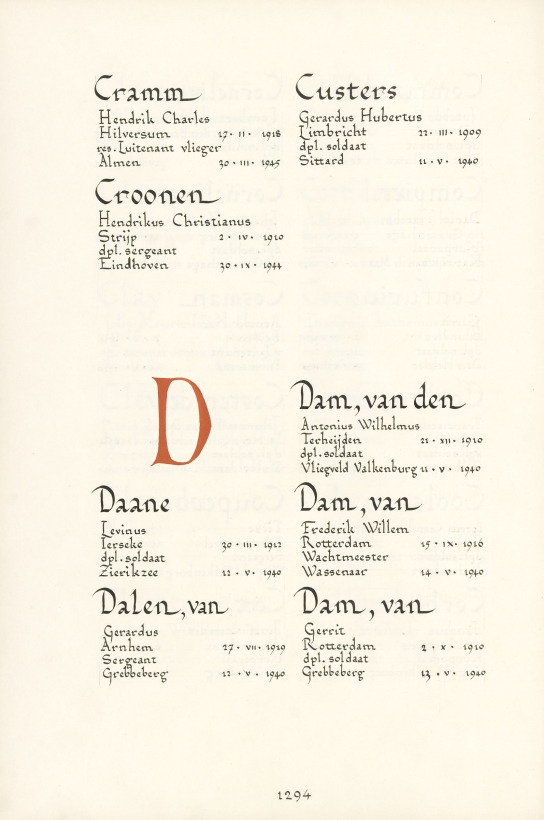 Cramm
Hendrik Charles
Hilversum 17 · 11 · 1918
res. Luitenant vlieger
Almen 30 · III · 1945
Croonen
Hendrikus Christianus
Strijp 2 · IV · 1910
dpl. sergeant
Eindhoven 30 · IX · 1944
Custers
Gerardus Hubertus
Limbricht 22 · III · 1909
dpl. soldaat
Sittard 11 · V · 1940
D
Daane
Levinus
Ierseke 30 · III · 1912
dpl. soldaat
Zierikzee 12 · V · 1940
Dalen, van
Gerardus
Arnhem 27 · VII · 1919
Sergeant
Grebbeberg 12 · V · 1940
Dam, van den
Antonius Wilhelmus
Terheijden 21 · XII · 1910
dpl. soldaat
Vliegveld Valkenburg 11 · V · 1940
Dam, van
Frederik Willem
Rotterdam 15 · IX · 1916
Wachtmeester
Wassenaar 14 · V · 1940
Dam, van
Gerrit
Rotterdam 2 · X · 1910
dpl. soldaat
Grebbeberg 13 · V · 1940
1294